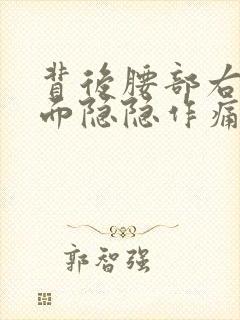 背後腰部右
而隐隐作痛
郭智强